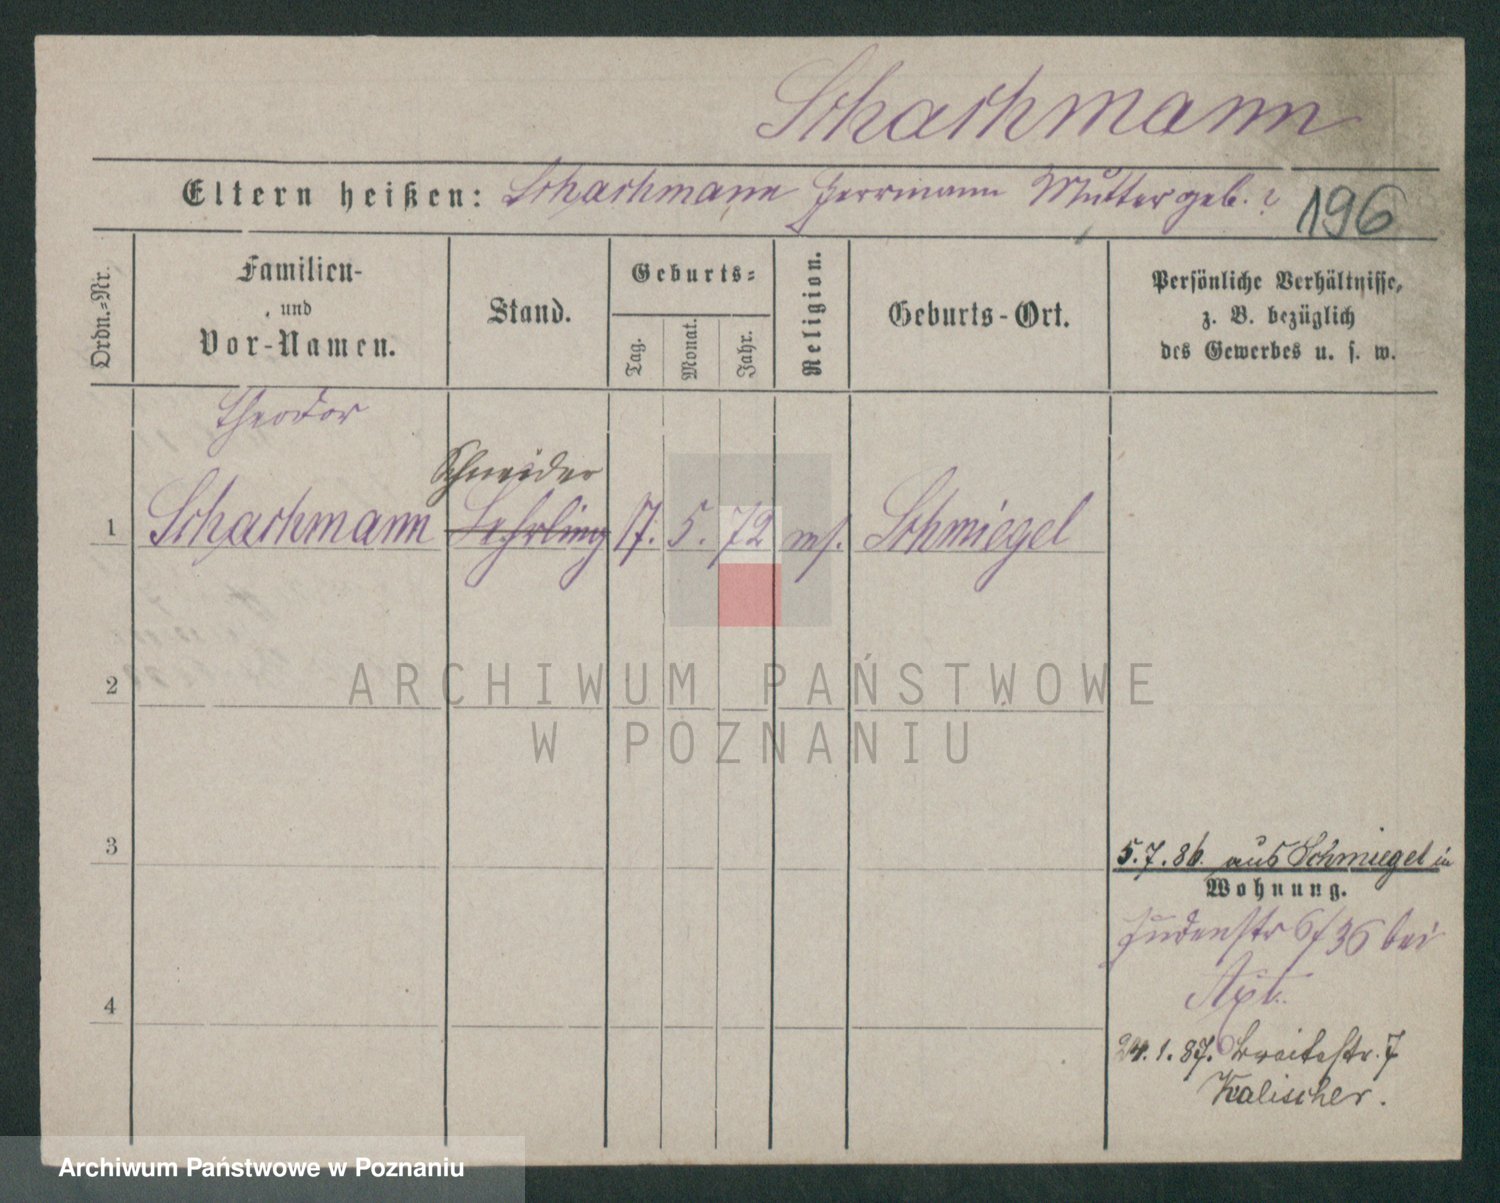 Schachmann
Eltern heißen: Schachmann Herrmann Mutter geb. ?
196
Ordn.-Nr.
Familien-
und
Vor-Namen.
Stand.
Geburts-
Tag.
Monat.
Jahr.
Religion.
Geburts-Ort.
Persönliche Verhältnisse,
z. B. bezüglich
des Gewerbes u. s. w.
Theodor
Schneider
1 Schachmann Lehrling 17. 5. 72 ms. Schmiegel
2
ARCHIWUM PAŃSTWOWE
W POZNANIU
3
5.7.86. aus Schmiegel in
Wohnung.
Judenstr 6/36 bei
Apt.
4
24.1.87. Breitestr. 7
Kalischer.
Archiwum Państwowe w Poznaniu